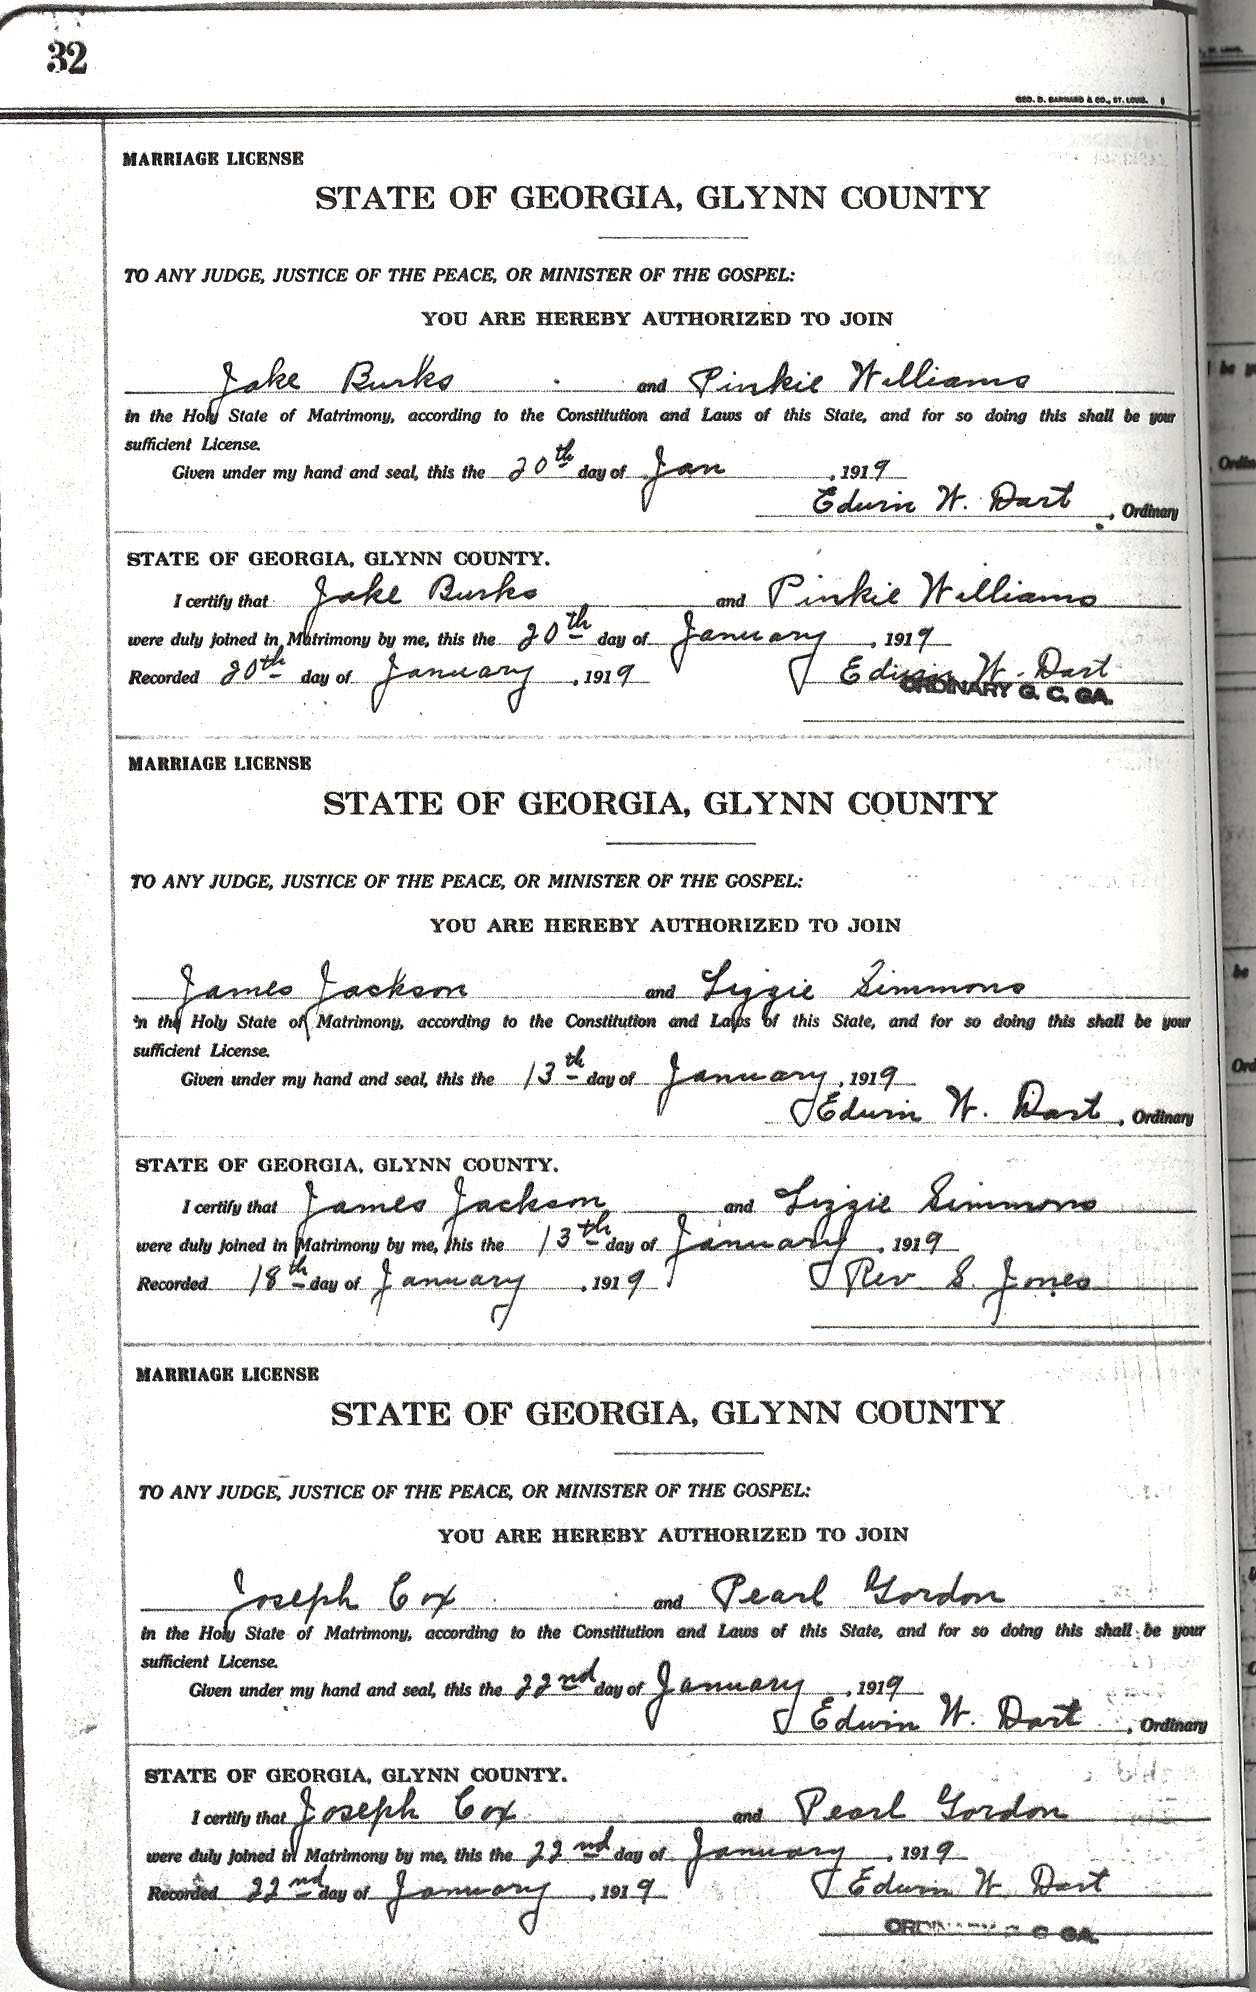 32
GEO. D. BARNARD & CO., ST. LOUIS.
MARRIAGE LICENSE
STATE OF GEORGIA, GLYNN COUNTY
TO ANY JUDGE, JUSTICE OF THE PEACE, OR MINISTER OF THE GOSPEL:
YOU ARE HEREBY AUTHORIZED TO JOIN
Jake Burks and Pinkie Williams
in the Holy State of Matrimony, according to the Constitution and Laws of this State, and for so doing this shall be your
sufficient License.
Given under my hand and seal, this the 20th day of Jan, 1919
Edwin W. Dart, Ordinary
STATE OF GEORGIA, GLYNN COUNTY.
I certify that Jake Burks and Pinkie Williams
were duly joined in Matrimony by me, this the 20th day of January, 1919
Recorded 20th day of January, 1919 Edwin W. Dart
ORDINARY G. C. GA.
MARRIAGE LICENSE
STATE OF GEORGIA, GLYNN COUNTY
TO ANY JUDGE, JUSTICE OF THE PEACE, OR MINISTER OF THE GOSPEL:
YOU ARE HEREBY AUTHORIZED TO JOIN
James Jackson and Lizzie Simmons
in the Holy State of Matrimony, according to the Constitution and Laws of this State, and for so doing this shall be your
sufficient License.
Given under my hand and seal, this the 13th day of January, 1919
Edwin W. Dart, Ordinary
STATE OF GEORGIA, GLYNN COUNTY.
I certify that James Jackson and Lizzie Simmons
were duly joined in Matrimony by me, this the 13th day of January, 1919
Recorded 18th day of January, 1919 Rev S. Jones
MARRIAGE LICENSE
STATE OF GEORGIA, GLYNN COUNTY
TO ANY JUDGE, JUSTICE OF THE PEACE, OR MINISTER OF THE GOSPEL:
YOU ARE HEREBY AUTHORIZED TO JOIN
Joseph Cox and Pearl Gordon
in the Holy State of Matrimony, according to the Constitution and Laws of this State, and for so doing this shall be your
sufficient License.
Given under my hand and seal, this the 22nd day of January, 1919
Edwin W. Dart, Ordinary
STATE OF GEORGIA, GLYNN COUNTY.
I certify that Joseph Cox and Pearl Gordon
were duly joined in Matrimony by me, this the 22nd day of January, 1919
Recorded 22nd day of January, 1919 Edwin W. Dart
ORDINARY G C GA.